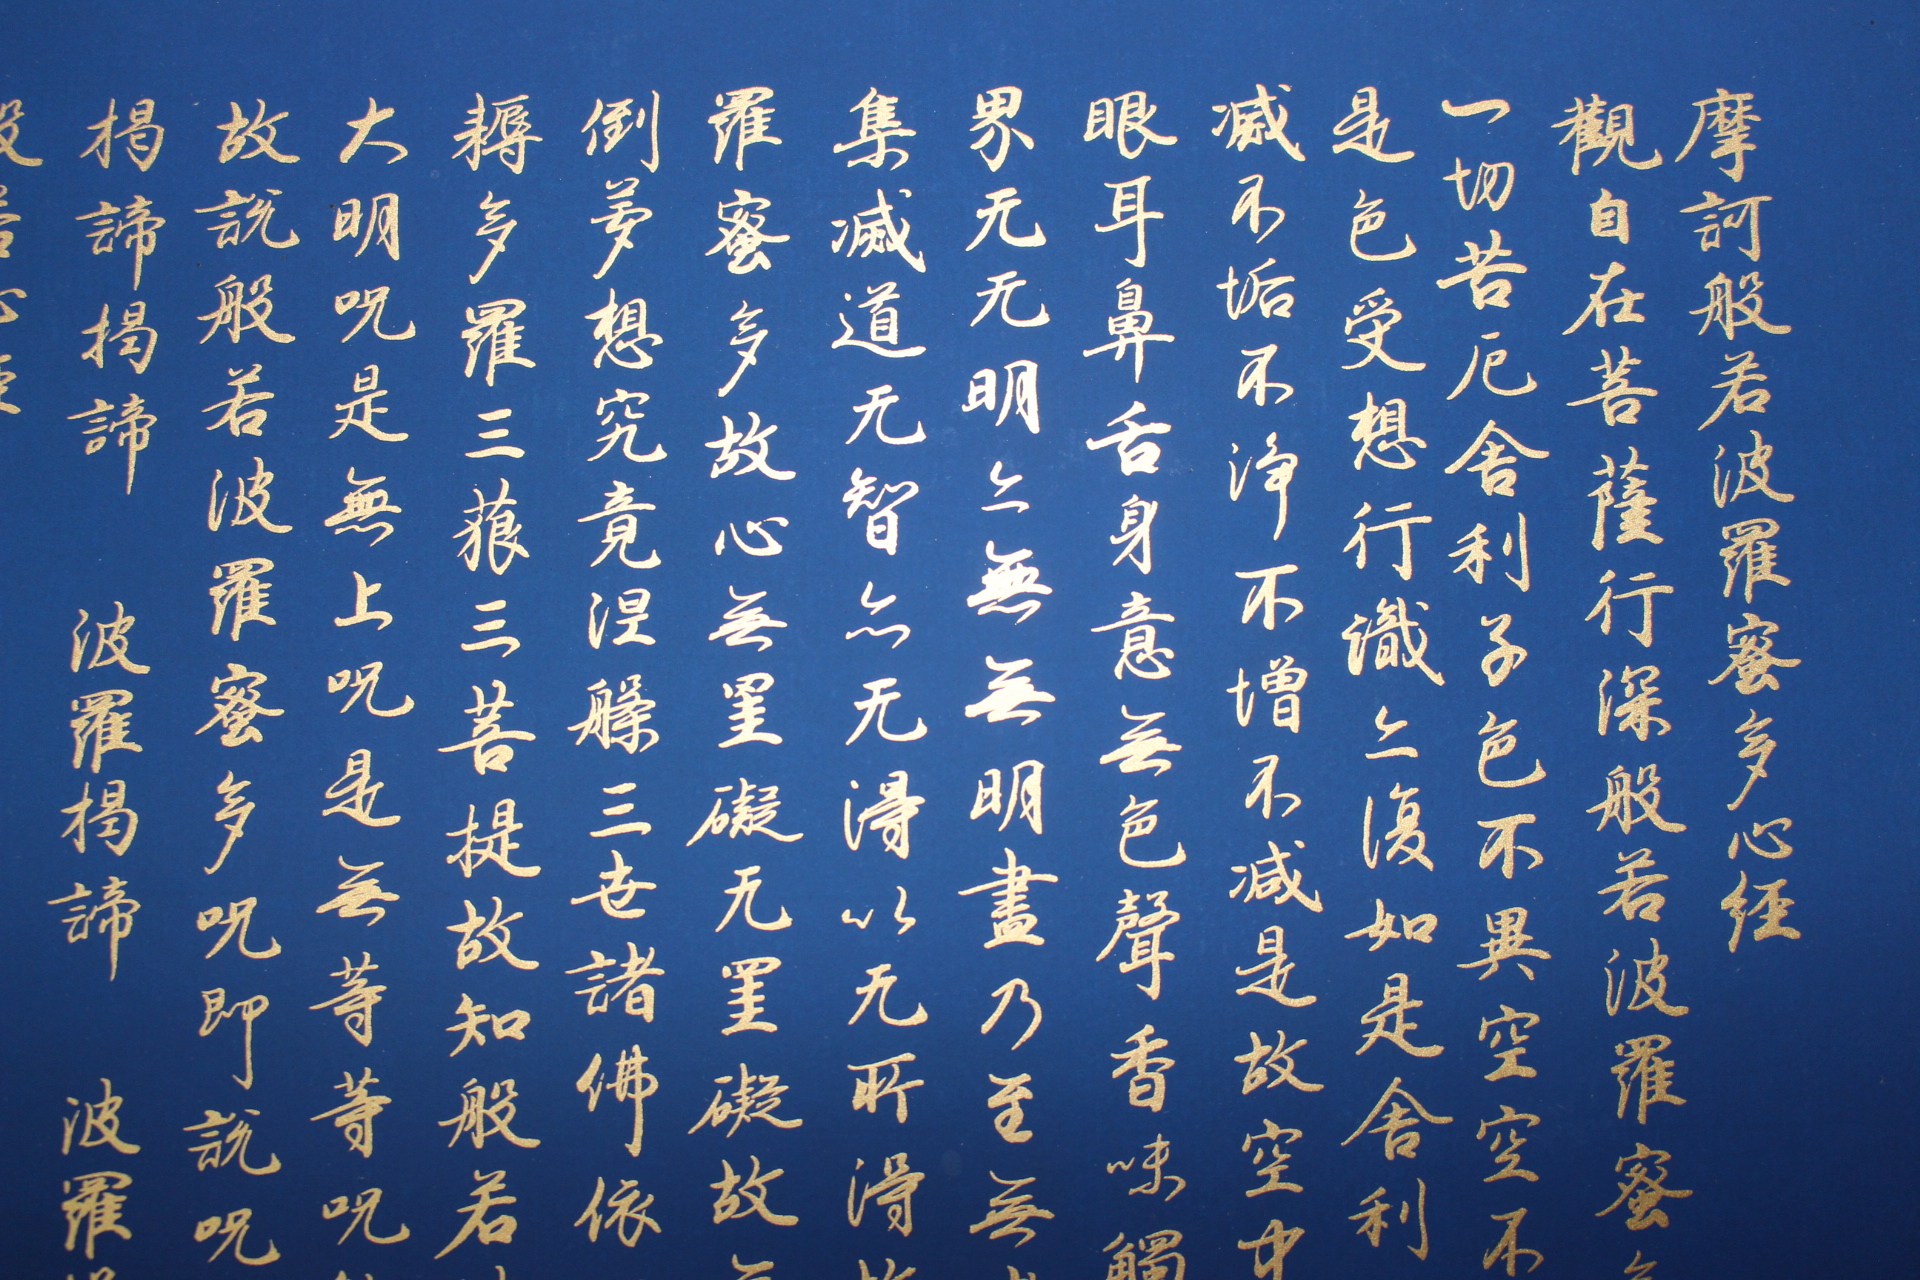 摩訶般若波羅蜜多心経
觀自在菩薩行深般若波羅蜜
一切苦厄舎利子色不異空空不
是色受想行識亦復如是舎利
滅不垢不浄不増不减是故空中
眼耳鼻舌身意無色聲香味觸
界无无明亦無無明盡乃至無
集滅道无智亦无得以无所得故
羅蜜多故心無罣礙无罣礙故無
倒夢想究竟涅槃三世諸佛依
耨多羅三藐三菩提故知般若
大明呪是無上呪是無等等呪
故説般若波羅蜜多呪即説呪
揭諦揭諦 波羅揭諦 波羅
般若心経